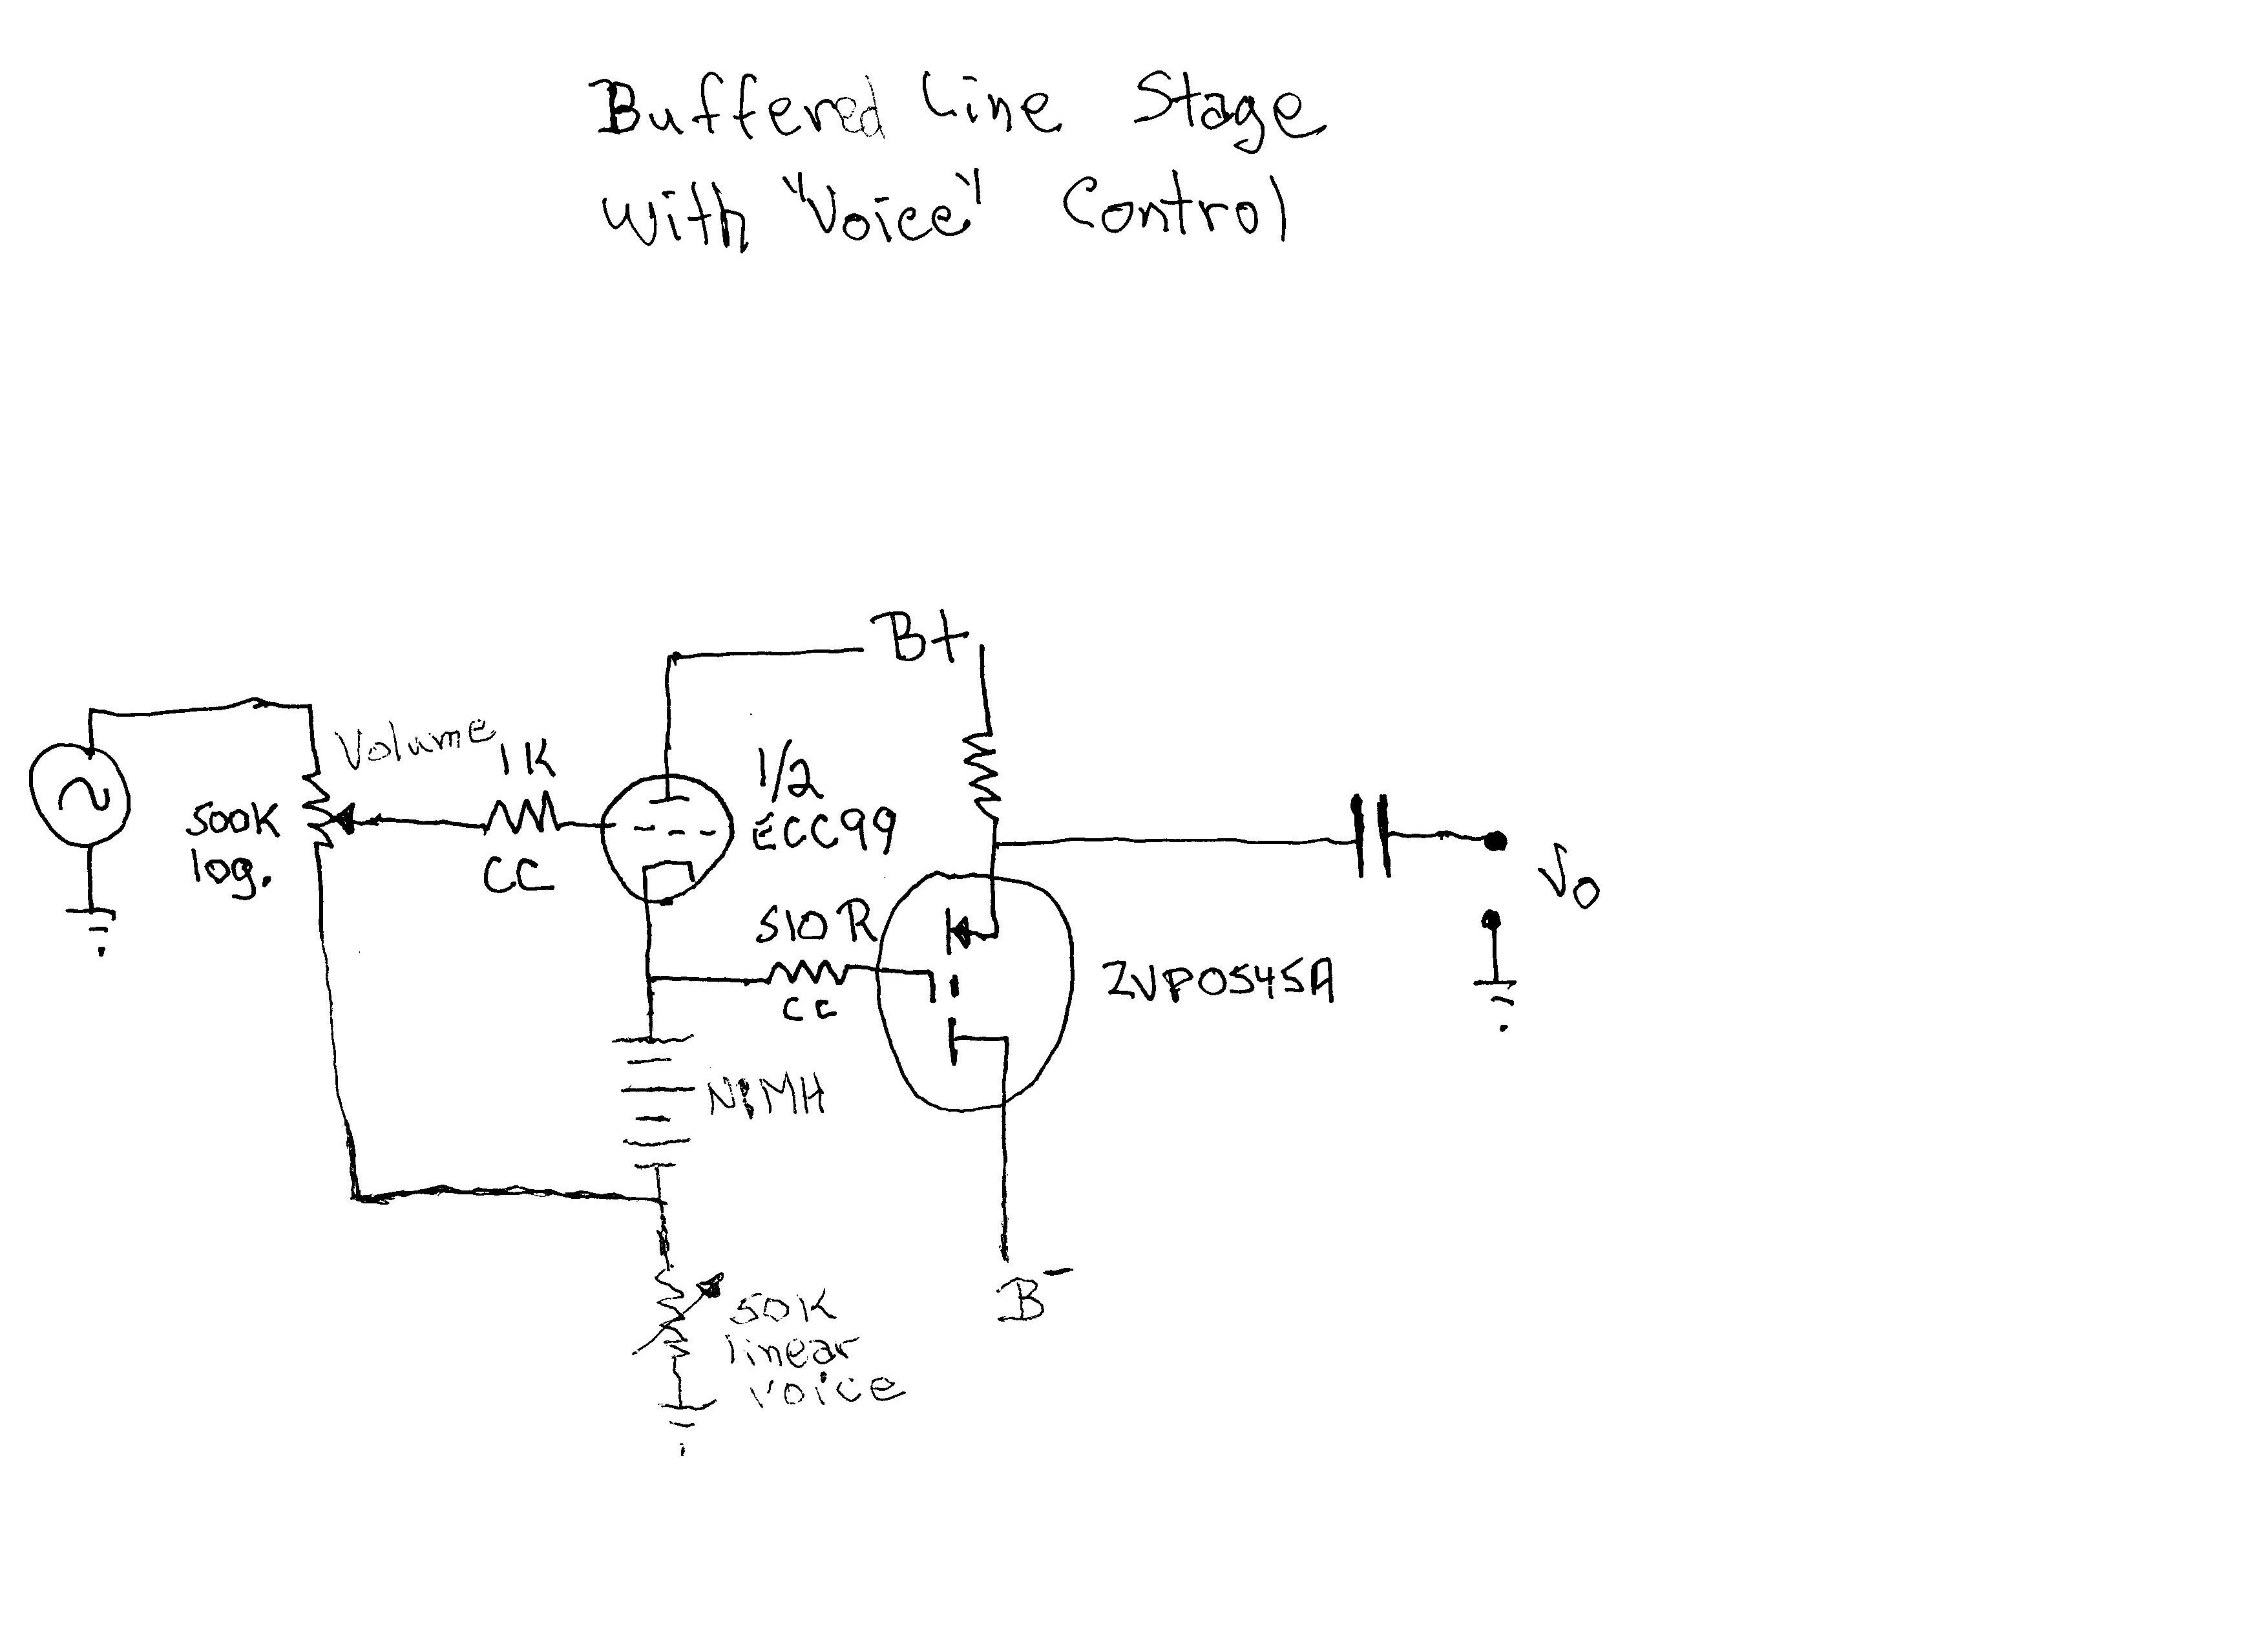 Buffered Line Stage
With "Voice" Control
B+
Volume
1K
1/2
ECC99
500K
log.
CC
510R
CC
Vo
ZVP0545A
NiMH
B-
50K
linear
voice